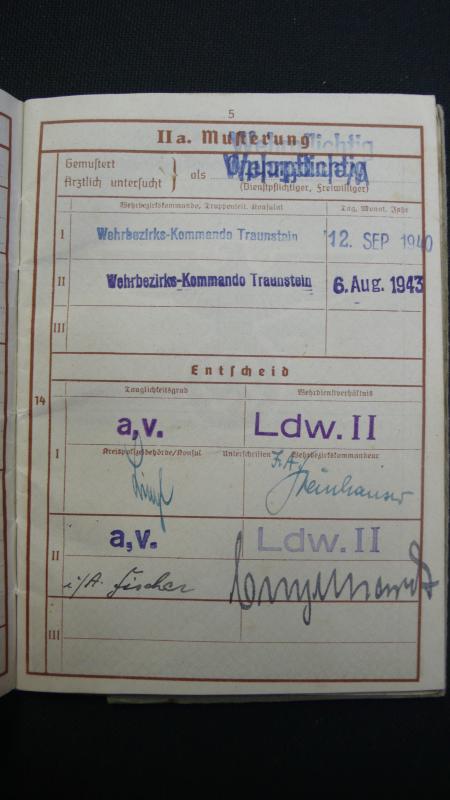 5
IIa. Musterung
Gemustert
Ärztlich untersucht } als Wehrpflichtig
(Dienstpflichtiger, Freiwilliger)
Wehrbezirkskommando, Truppenteil, Konsulat Tag, Monat, Jahr
I Wehrbezirks-Kommando Traunstein 12. SEP 1940
II Wehrbezirks-Kommando Traunstein 6. Aug. 1943
III
Entscheid
14
Tauglichkeitsgrad Wehrdienstverhältnis
a.v. Ldw. II
I Kreispolizeibehörde/Konsul Unterschriften Wehrbezirkskommandeur
a.v. Ldw. II
II i/A. Fischer
III